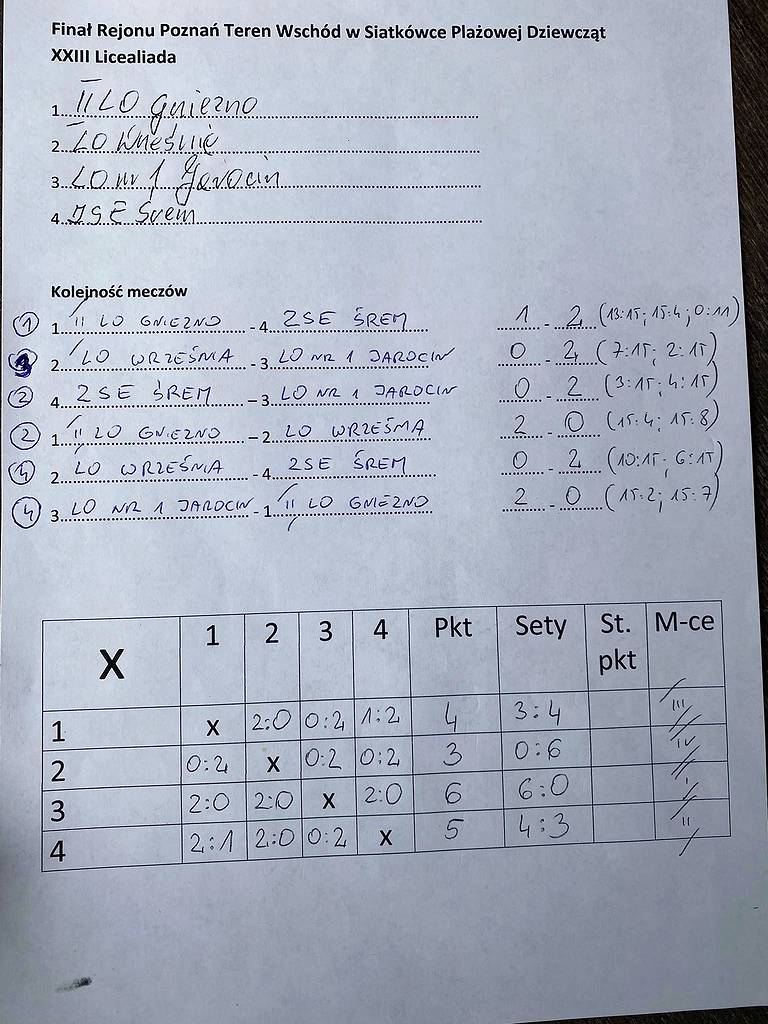 Finał Rejonu Poznań Teren Wschód w Siatkówce Plażowej Dziewcząt
XXIII Licealiada
1. II LO Gniezno
2. LO Wrześnie
3. LO nr 1 Jarocin
4. ZSE Śrem
Kolejność meczów
1 1. II LO GNIEZNO - 4. ZSE ŚREM 1 - 2 (13:15; 15:4; 0:11)
2. LO WRZEŚNIA - 3 LO NR 1 JAROCIN 0 - 2 (7:15; 2:15)
2 4. ZSE ŚREM – 3 LO NR 1 JAROCIN 0 - 2 (3:15; 4:15)
2 1. II LO GNIEZNO – 2. LO WRZEŚNIA 2 - 0 (15:4; 15:8)
2. LO WRZEŚNIA - 4. ZSE ŚREM 0 - 2 (10:15; 6:15)
4 3. LO NR 1 JAROCIN - 1. II LO GNIEZNO 2 - 0 (15:2; 15:7)
X 1 2 3 4 Pkt Sety St. pkt M-ce
1 X 2:0 0:2 1:2 4 3:4 III
2 0:2 X 0:2 0:2 3 0:6 IV
3 2:0 2:0 X 2:0 6 6:0 I
4 2:1 2:0 0:2 X 5 4:3 II